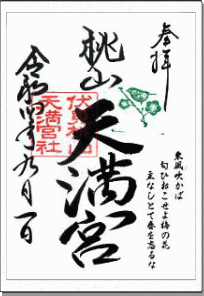 奉拝
桃山天満宮
伏見桃山
天満宮社
東風吹かば
匂ひおこせよ梅の花
主なしとて春を忘るな
令和四年九月一日